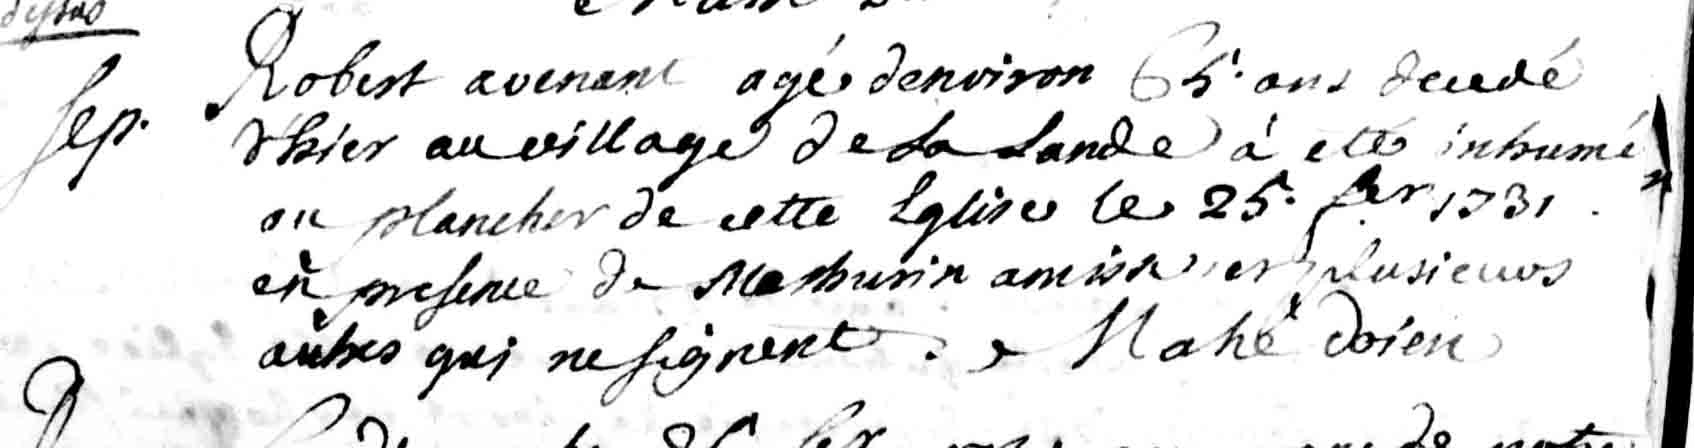 Sep.
Robert avenant agé denviron 65. ans decedé
d'hier au village de la Lande à eté inhumé
au plancher de cette Eglise le 25. fer 1731.
en presence de Mathurin et plusieurs
autres qui ne signent. Mahé doien